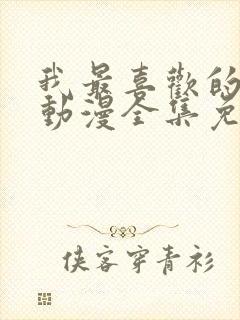 我最喜歡的
動漫全集免
俠客穿青衫